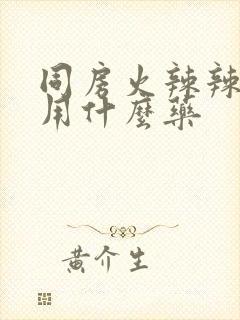 同房火辣辣
用什麼藥
黃介生